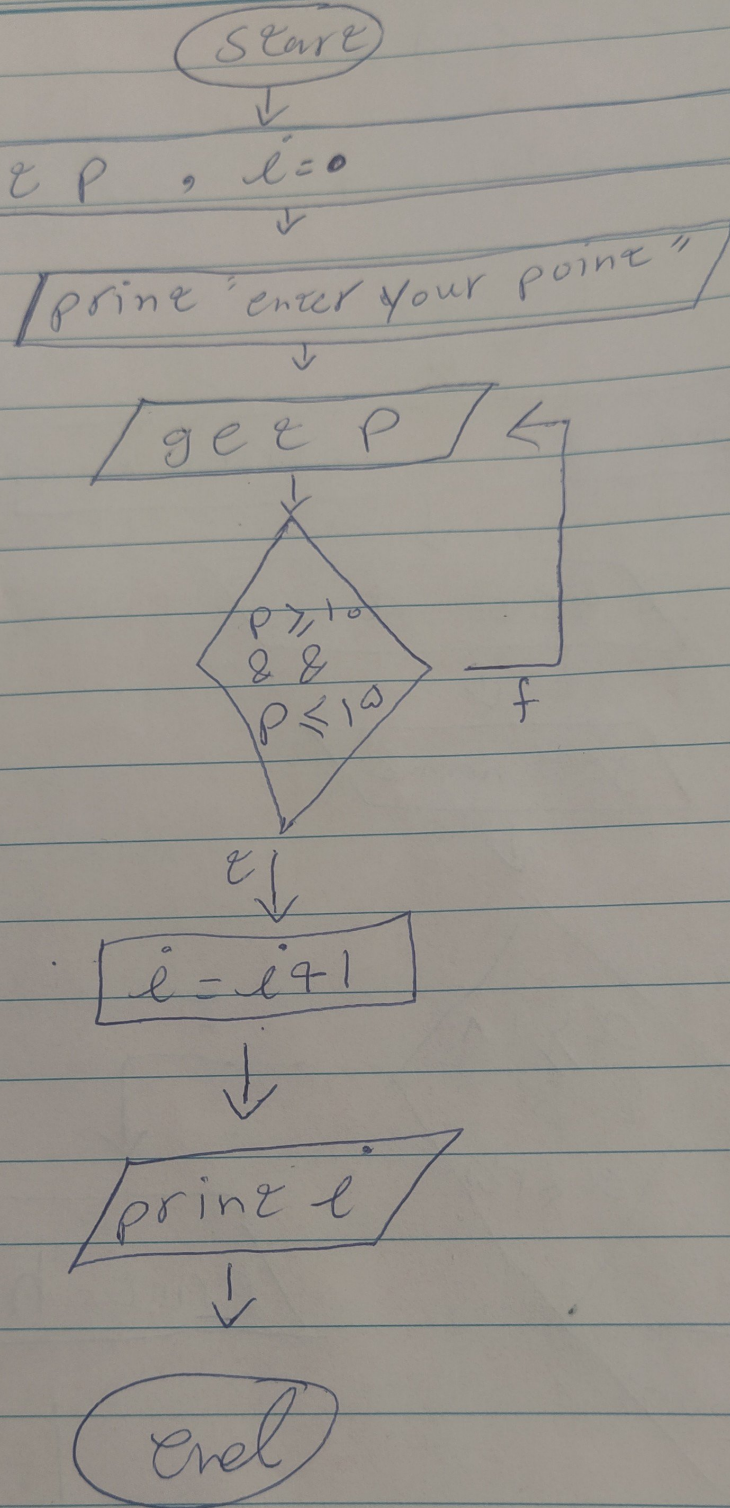 start
t p , i=0
print "enter your point"
get p
p ≥ ۱۰
& &
p ≤ ۱۵
f
t
i = i+1
print i
end